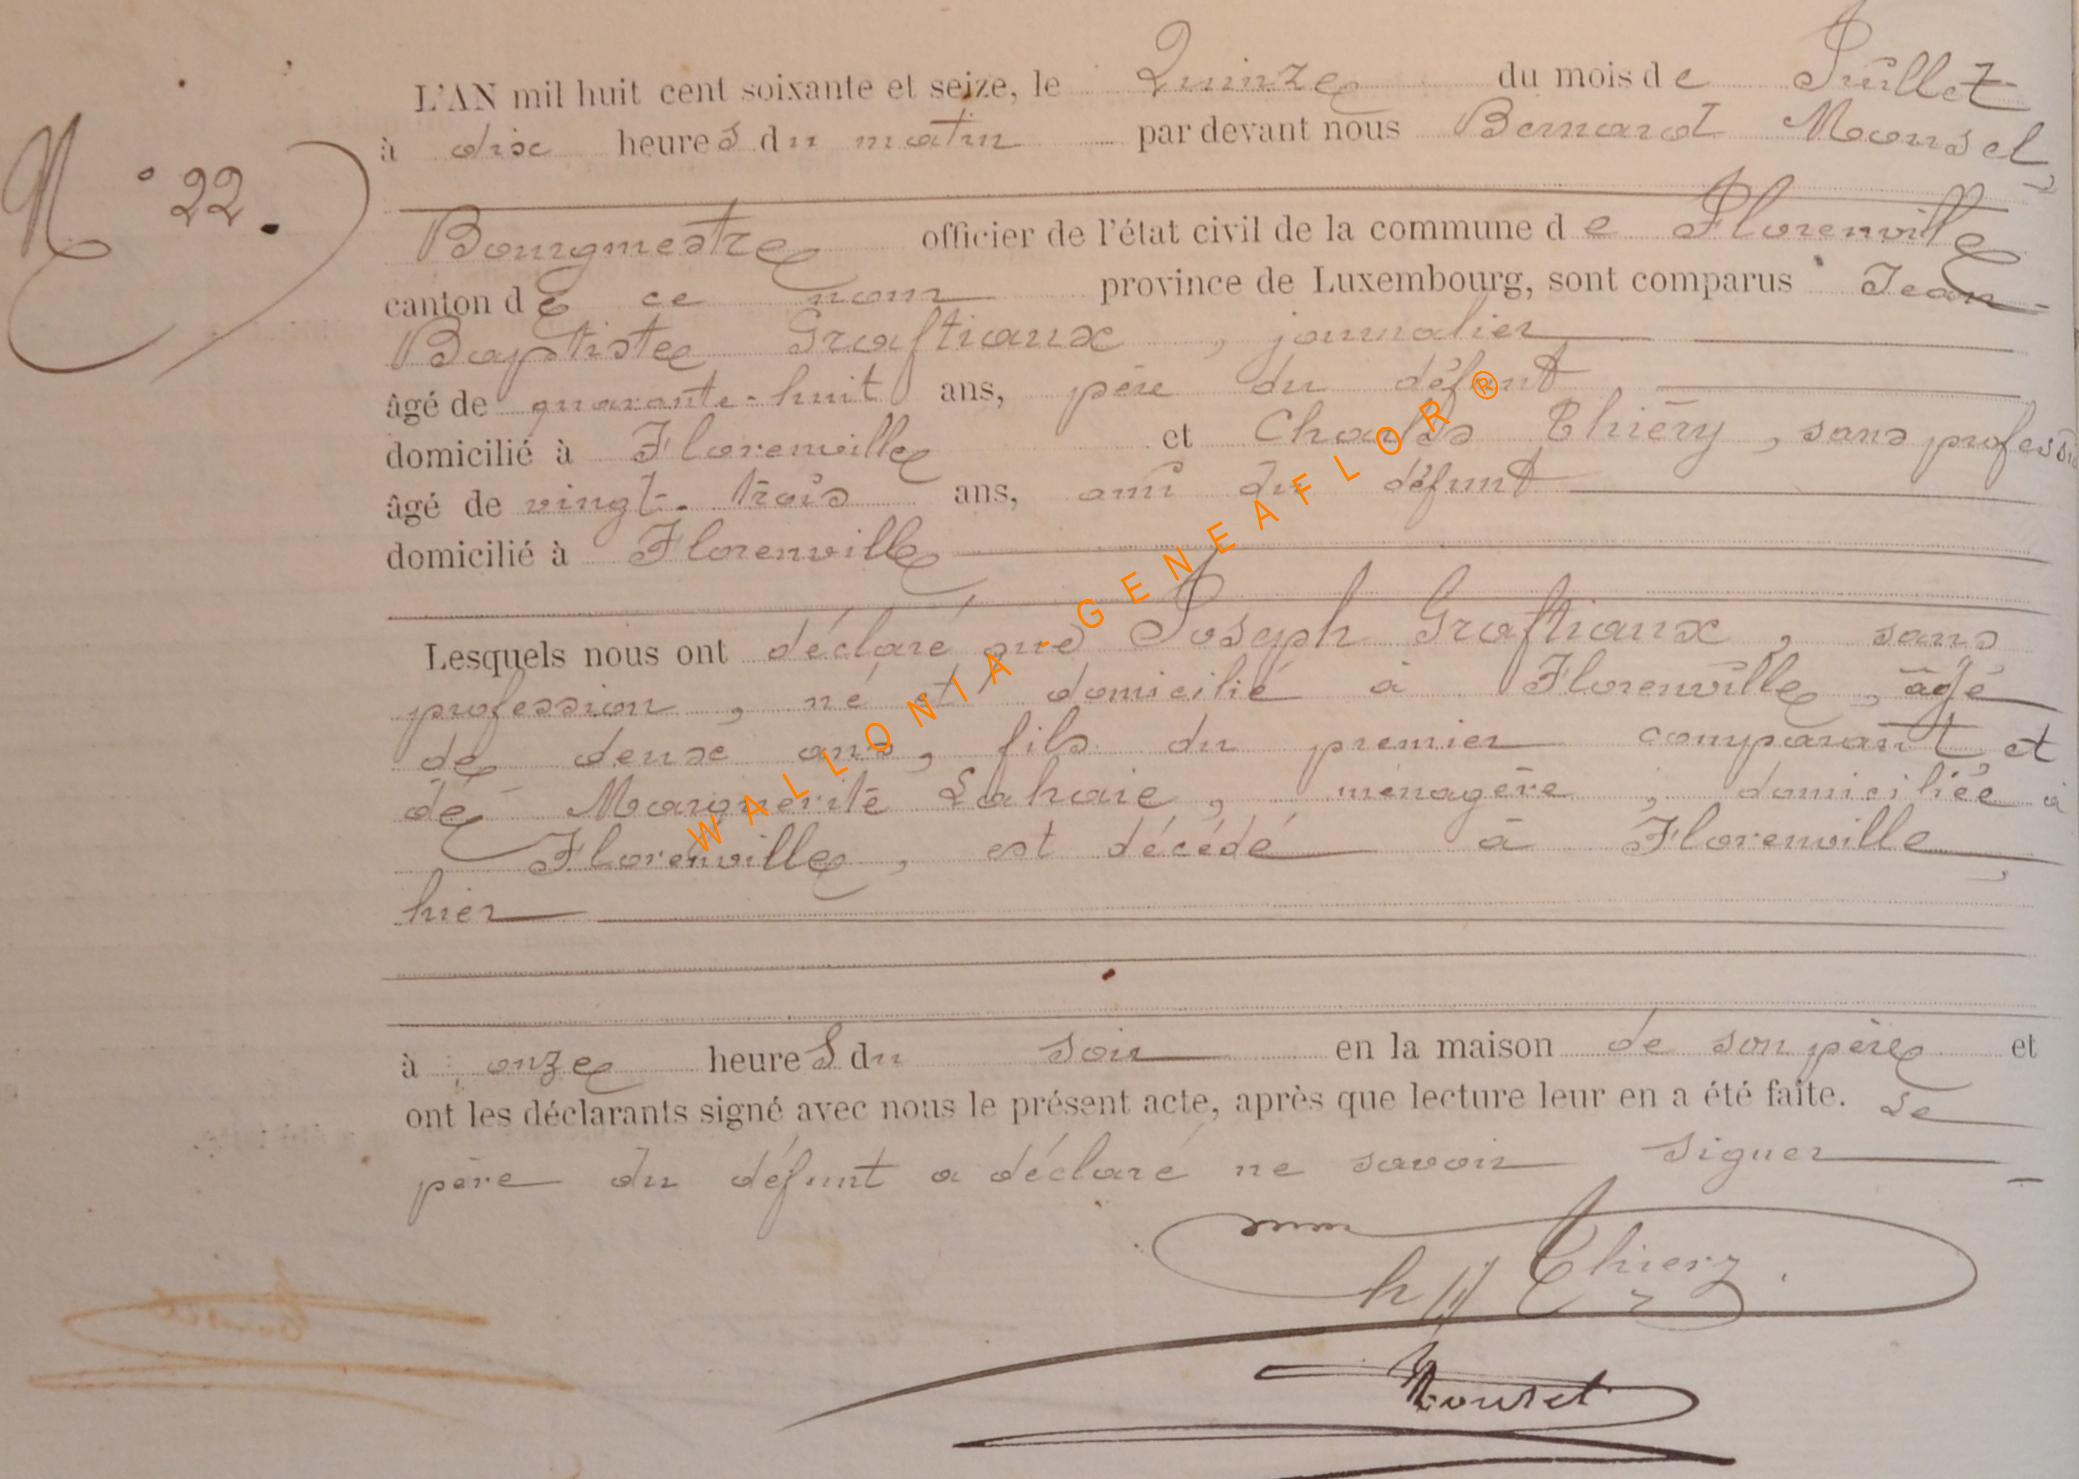 N° 22.
L'AN mil huit cent soixante et seize, le Quinze du mois de Juillet
à dix heures du matin par devant nous Bernard Mouset,
Bourgmestre officier de l'état civil de la commune de Florenville
canton de ce nom province de Luxembourg, sont comparus Jean-
Baptiste Graftiaux, journalier
âgé de quarante-huit ans, père du défunt
domicilié à Florenville et Charles Thiéry, sans profession
âgé de vingt-trois ans, ami du défunt
domicilié à Florenville
Lesquels nous ont déclaré que Joseph Graftiaux, sans
profession, né et domicilié à Florenville, âgé
de deux ans, fils du premier comparant et
de Marguerite Lahaie, ménagère, domiciliée à
Florenville, est décédé à Florenville,
hier
à onze heures du soir en la maison de son père et
ont les déclarants signé avec nous le présent acte, après que lecture leur en a été faite. Le
père du défunt a déclaré ne savoir signer
Ch Thiery
Mouset
WALLONIA-GENEAFLOR®